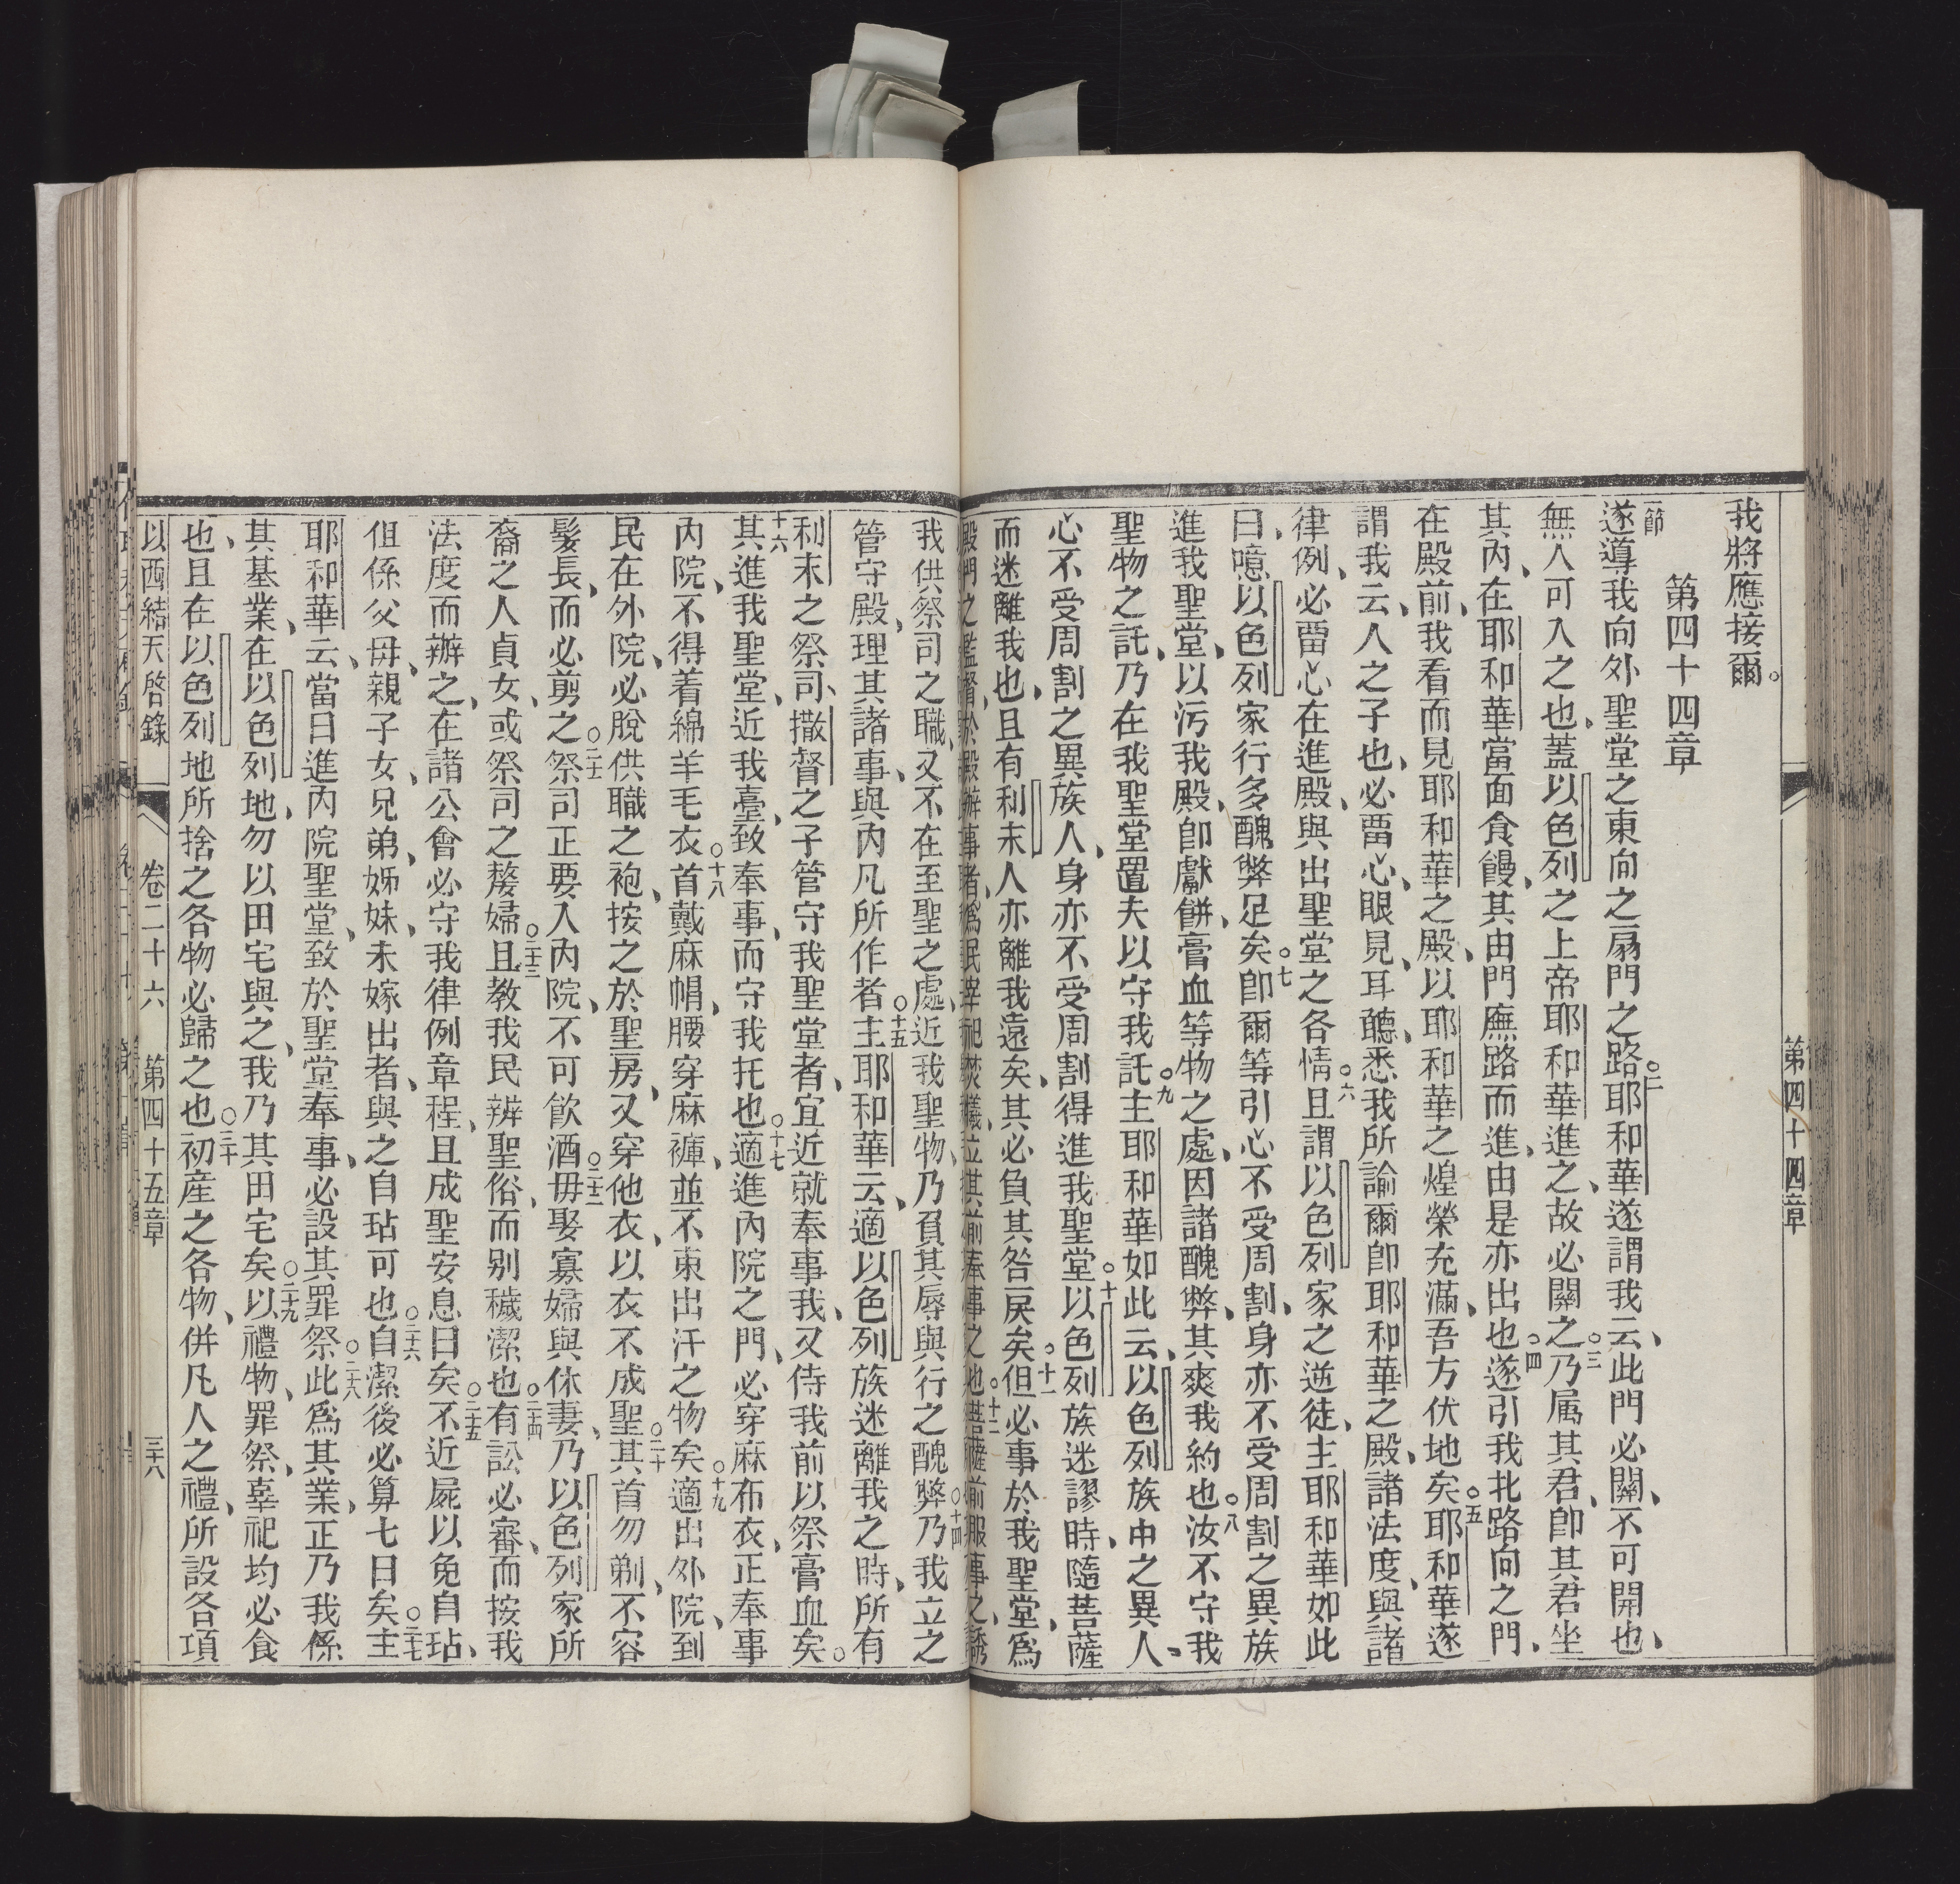 第四十四章
我將應接爾。
第四十四章
一節遂導我向外聖堂之東向之扇門之路○二耶和華遂謂我云、此門必關、不可開也、
無人可入之也、蓋以色列之上帝耶和華進之、故必關之○三乃属其君、即其君坐
其內、在耶和華當面食饅、其由門廡路而進、由是亦出也○四遂引我北路向之門、
在殿前、我看而見耶和華之殿、以耶和華之煌榮充滿、吾方伏地矣○五耶和華遂
謂我云、人之子也、必畱心、眼見、耳聽、悉我所諭爾即耶和華之殿、諸法度、與諸
律例、必畱心在進殿、與出聖堂之各情○六且謂以色列家之逆徒、主耶和華如此
曰、噫以色列家行多醜弊足矣○七即爾等引心不受周割、身亦不受周割之異族
進我聖堂、以污我殿、即獻餅、膏血等物之處、因諸醜弊、其爽我約也○八汝不守我
聖物之託、乃在我聖堂置夫以守我託○九主耶和華如此云、以色列族中之異人、
心不受周割之異族人、身亦不受周割得進我聖堂○十以色列族迷謬時、隨菩薩
而迷離我也、且有利未人亦離我遠矣、其必負其咎戾矣○十一但必事於我聖堂、為
殿門之監督、於殿辦事者、為民宰祀焚犧、立其前奉事之也○十二菩薩前服事之、誘
我供祭司之職、又不在至聖之處、近我聖物、乃負其辱與行之醜弊○十四乃我立之
管守殿、理其諸事、與內凡所作者○十五主耶和華云、適以色列族迷離我之時、所有
利未之祭司、撒督之子管守我聖堂者、宜近就奉事我、又侍我前以祭膏血矣。
十六其進我聖堂、近我臺、致奉事、而守我托也○十七適進內院之門、必穿麻布衣、正奉事
內院、不得着綿羊毛衣○十八首戴麻帽、腰穿麻褲、並不束出汗之物矣○十九適出外院、到
民在外院、必脫供職之袍、按之於聖房、又穿他衣、以衣不成聖○二十其首勿剃、不容
髮長、而必剪之○二十一祭司正要入內院、不可飲酒○二十二毋娶寡婦與休妻、乃以色列家所
裔之人貞女、或祭司之嫠婦○二十三且教我民辨聖俗、而別穢潔也○二十四有訟必審、而按我
法度而辦之、在諸公會必守我律例章程、且成聖安息日矣○二十五不近屍以免自玷、
但係父母、親子女、兄弟、姊妹未嫁出者、與之自玷可也○二十六自潔後必算七日矣○二十七主
耶和華云、當日進內院聖堂、致於聖堂奉事、必設其罪祭○二十八此為其業、正乃我係
其基業、在以色列地、勿以田宅與之、我乃其田宅矣○二十九以禮物、罪祭、辜祀均必食
也、且在以色列地所捨之各物必歸之也○三十初産之各物、併凡人之禮、所設各項
以西結天啓錄 卷二十六 第四十五章 三十八